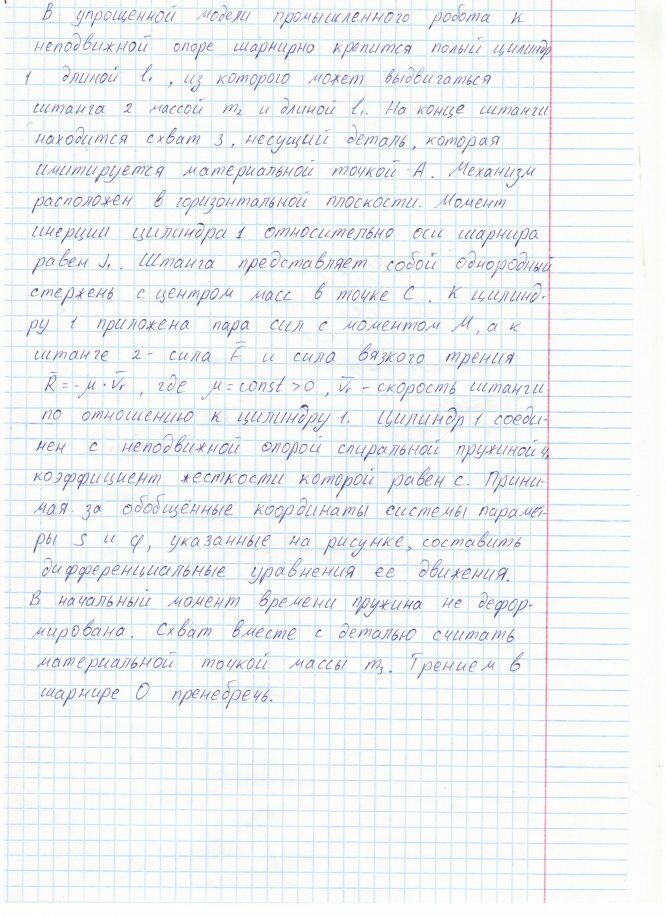 В упрощенной модели промышленного робота к
неподвижной опоре шарнирно крепится полый цилиндр
1 длиной l₁, из которого может выдвигаться
штанга 2 массой m₂ и длиной l₁. На конце штанги
находится схват 3, несущий деталь, которая
имитируется материальной точкой А. Механизм
расположен в горизонтальной плоскости. Момент
инерции цилиндра 1 относительно оси шарнира
равен J₁. Штанга представляет собой однородный
стержень с центром масс в точке С. К цилинд-
ру 1 приложена пара сил с моментом М, а к
штанге 2 - сила F̅ и сила вязкого трения
R̅ = -μ · v̅ᵣ, где μ = const > 0, v̅ᵣ - скорость штанги
по отношению к цилиндру 1. Цилиндр 1 соеди-
нен с неподвижной опорой спиральной пружиной 4,
коэффициент жесткости которой равен с. Прини-
мая за обобщённые координаты системы парамет-
ры s и φ, указанные на рисунке, составить
дифференциальные уравнения ее движения.
В начальный момент времени пружина не дефор-
мирована. Схват вместе с деталью считать
материальной точкой массы m₃. Трением в
шарнире О пренебречь.